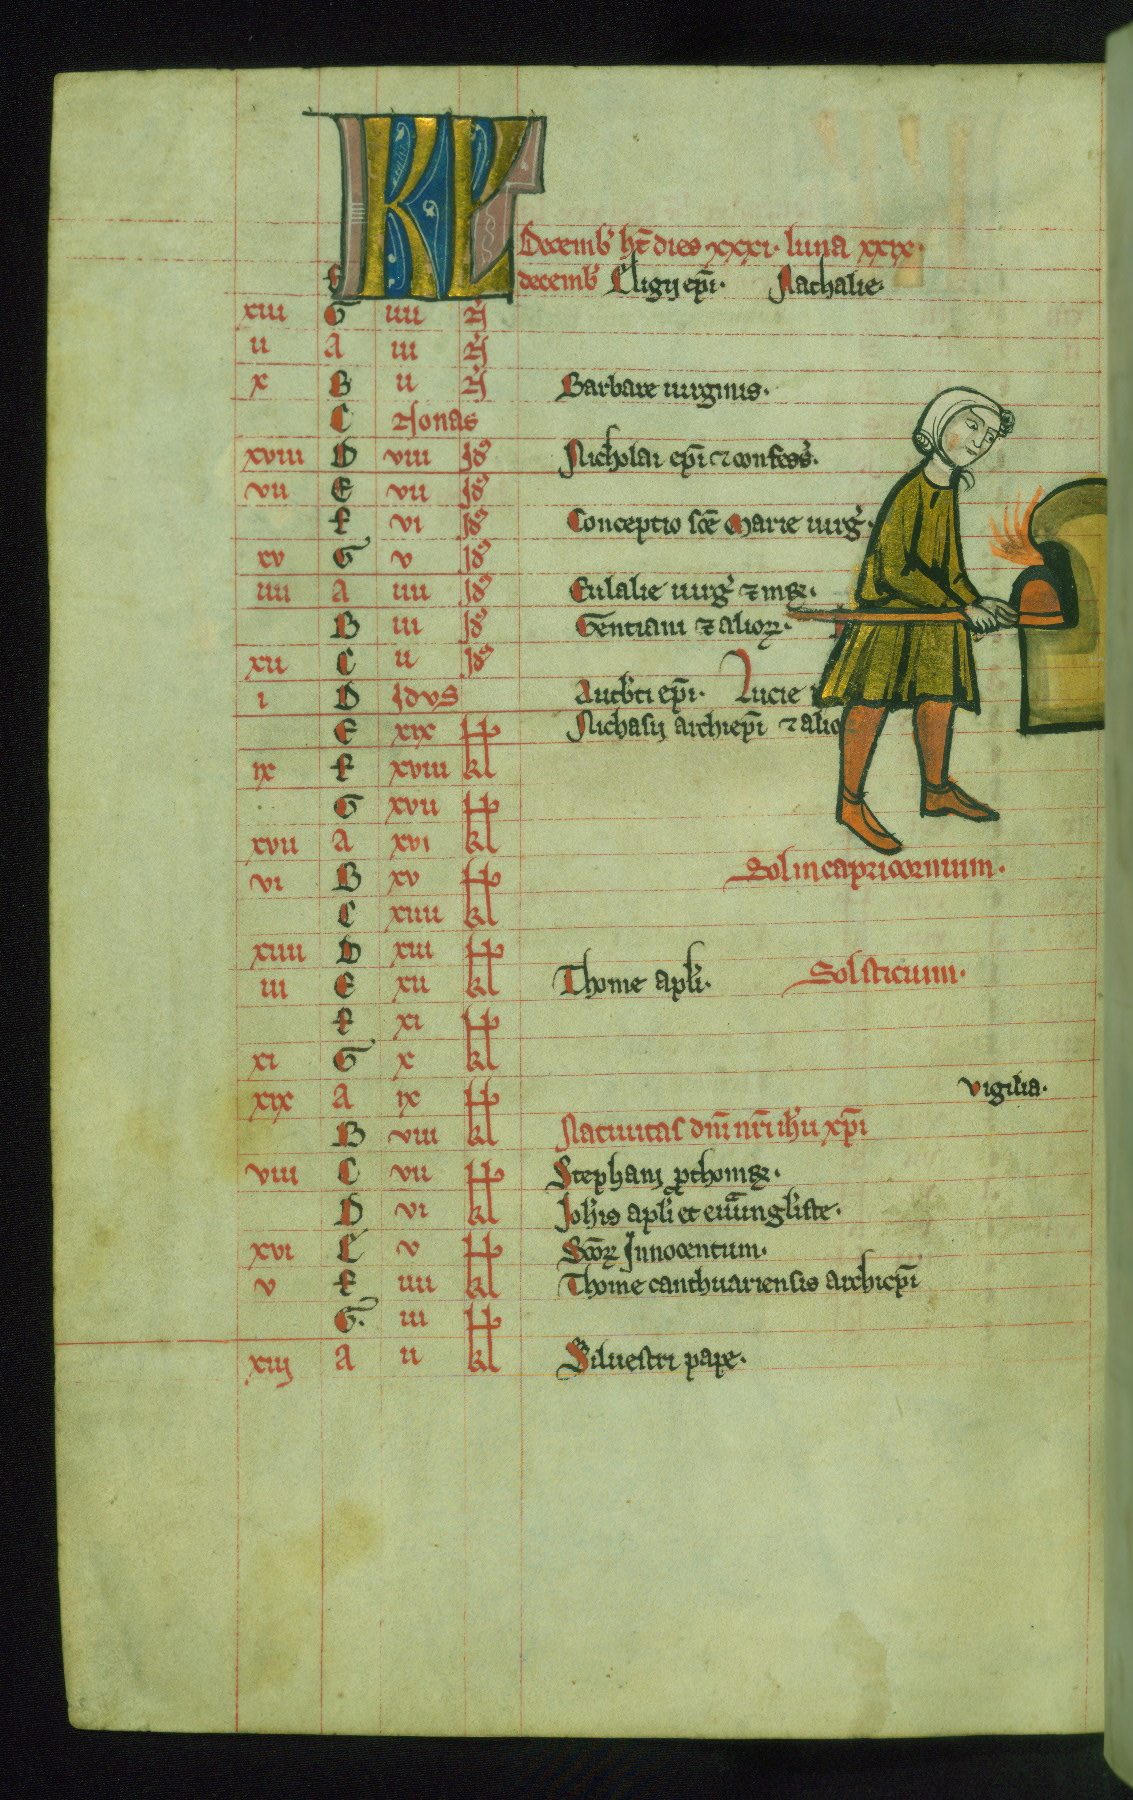 KL
Decemb' ht dies xxxi. luna xxix.
F decemb' Eligij epi. Nathalie.
xiii G iiii N
ii A iii N
x B ii N Barbare uirginis.
C Nonas
xviii D viii Id' Nicholai epi et confess'.
vii E vii Id'
F vi Id' Conceptio sce Marie uirg'.
xv G v Id'
iiii A iiii Id' Eulalie uirg' et mr.
B iii Id' Gentiani et alior.
xii C ii Id'
i D Idus Autb'ti epi. Lucie
E xix kl Nichasij archiepi et alio
ix F xviii kl
G xvii kl
xvii A xvi kl
vi B xv kl Sol in capricornium.
C xiiii kl
xiiii D xiii kl
iii E xii kl Thome apli. Solsticium.
F xi kl
xi G x kl
xix A ix kl vigilia.
B viii kl Natiuitas dni nri ihu xpi
viii C vii kl Stephani pthomr.
D vi kl Joh'is apli et euuangliste.
xvi E v kl Scor Innocentum.
v F iiii kl Thome canthuariensis archiepi
G. iii kl
xiij A ii kl Siluestri pape.